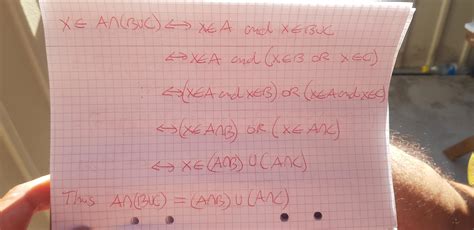 x ∈ A∩(B∪C) ⟷ x∈A and x∈B∪C
⟷ x∈A and (x∈B OR x∈C)
⟷ (x∈A and x∈B) OR (x∈A and x∈C)
⟷ (x∈A∩B) OR (x∈A∩C)
⟷ x∈(A∩B) ∪ (A∩C)
Thus A∩(B∪C) = (A∩B) ∪ (A∩C)